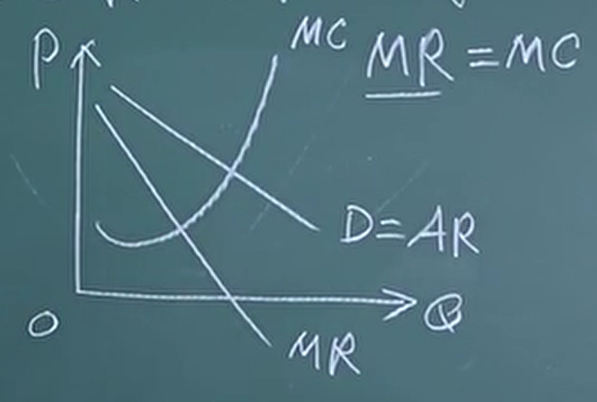 MC MR = MC
P
D = AR
O
Q
MR